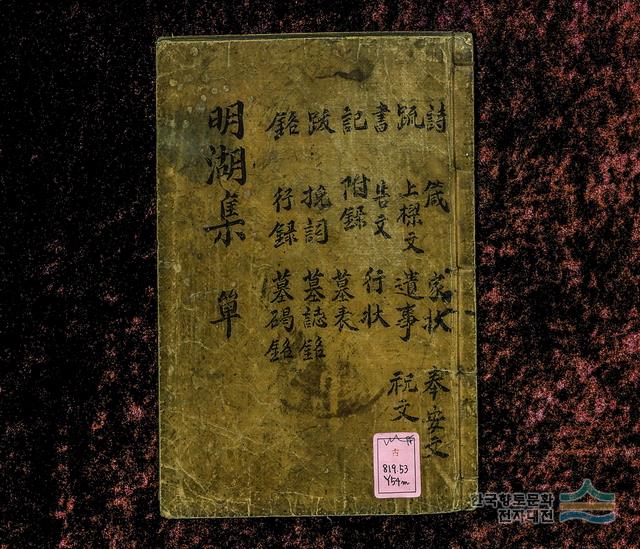 詩 箴 家狀 奉安文
䟽 上樑文 遺事 祝文
書 告文 行狀
記 附錄 墓表
跋 挽詞 墓誌銘
銘 行錄 墓碣銘
明湖集 單
古
819.53
Y54m
한국향토문화
전자대전